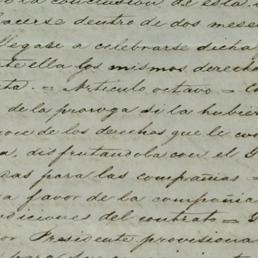 la conclusion de esta
hacerse dentro de dos mese
llegase a celebrarse dicha
ella los mismos derech
ta. — Artículo octavo — C
de la proroga si la hubier
goce de los derechos que le co
a, disfrutandola con el G
das para las compañias —
a favor de la compañia
ndiciones del contrato —
or Presidente provisiona